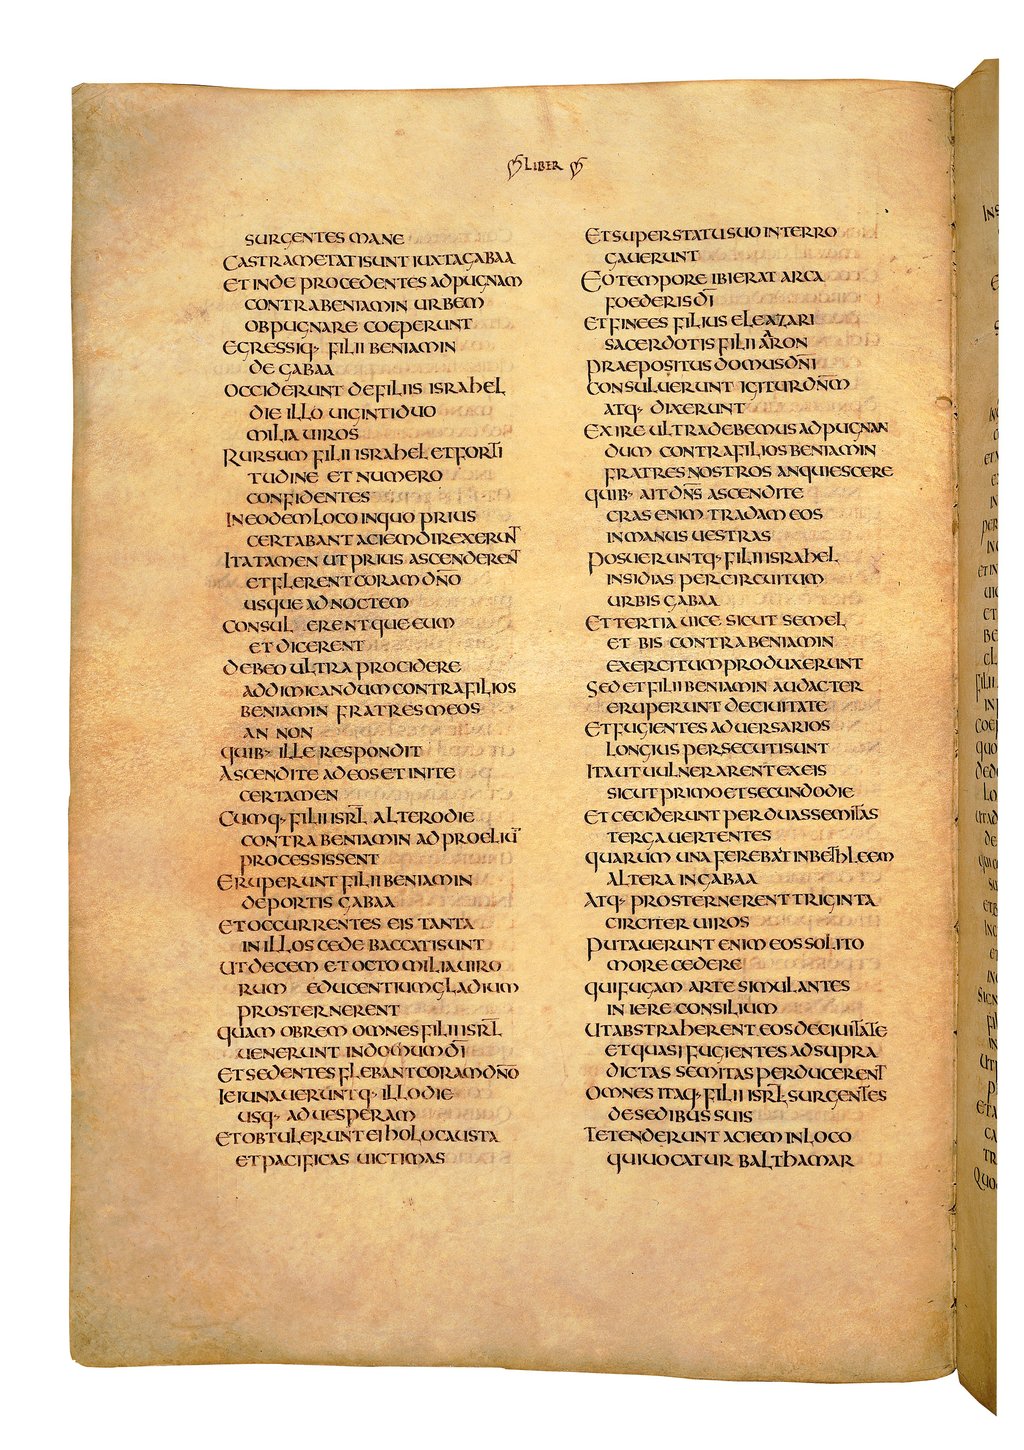 LIBER
SURGENTES MANE
CASTRAMETATI SUNT IUXTA GABAA
ET INDE PROCEDENTES AD PUGNAM
CONTRA BENIAMIN URBEM
OBPUGNARE COEPERUNT
EGRESSIQ· FILII BENIAMIN
DE GABAA
OCCIDERUNT DE FILIIS ISRAHEL
DIE ILLO UIGINTI DUO
MILIA UIROS
RURSUM FILII ISRAHEL ET FORTI
TUDINE ET NUMERO
CONFIDENTES
IN EODEM LOCO IN QUO PRIUS
CERTABANT ACIEM DIREXERUNT
ITA TAMEN UT PRIUS ASCENDERENT
ET FLERENT CORAM DÑO
USQUE AD NOCTEM
CONSUL ERENTQUE EUM
ET DICERENT
DEBEO ULTRA PROCIDERE
AD DIMICANDUM CONTRA FILIOS
BENIAMIN FRATRES MEOS
AN NON
QUIB· ILLE RESPONDIT
ASCENDITE AD EOS ET INITE
CERTAMEN
CUMQ· FILII ISRL̅ ALTERO DIE
CONTRA BENIAMIN AD PROELIU̅
PROCESSISSENT
ERUPERUNT FILII BENIAMIN
DE PORTIS GABAA
ET OCCURRENTES EIS TANTA
IN ILLOS CEDE BACCATI SUNT
UT DECEM ET OCTO MILIA UIRO
RUM EDUCENTIUM GLADIUM
PROSTERNERENT
QUAM OBREM OMNES FILII ISRL̅
UENERUNT IN DOMUM DI̅
ET SEDENTES FLEBANT CORAM DÑO
IEIUNAUERUNTQ· ILLO DIE
USQ· AD UESPERAM
ET OBTULERUNT EI HOLOCAUSTA
ET PACIFICAS UICTIMAS
ET SUPER STATU SUO INTERRO
GAUERUNT
EO TEMPORE IBI ERAT ARCA
FOEDERIS DI̅
ET FINEES FILIUS ELEAZARI
SACERDOTIS FILII AARON
PRAEPOSITUS DOMUS DÑI
CONSULUERUNT IGITUR DÑM
ATQ· DIXERUNT
EXIRE ULTRA DEBEMUS AD PUGNAN
DUM CONTRA FILIOS BENIAMIN
FRATRES NOSTROS AN QUIESCERE
QUIB· AIT DÑS ASCENDITE
CRAS ENIM TRADAM EOS
IN MANUS UESTRAS
POSUERUNTQ· FILII ISRAHEL
INSIDIAS PER CIRCUITUM
URBIS GABAA
ET TERTIA UICE SICUT SEMEL
ET BIS CONTRA BENIAMIN
EXERCITUM PRODUXERUNT
SED ET FILII BENIAMIN AUDACTER
ERUPERUNT DE CIUITATE
ET FUGIENTES ADUERSARIOS
LONGIUS PERSECUTI SUNT
ITA UT UULNERARENT EX EIS
SICUT PRIMO ET SECUNDO DIE
ET CECIDERUNT PER DUAS SEMITAS
TERGA UERTENTES
QUARUM UNA FEREBAT IN BETHLEEM
ALTERA IN GABAA
ATQ· PROSTERNERENT TRIGINTA
CIRCITER UIROS
PUTAUERUNT ENIM EOS SOLITO
MORE CEDERE
QUI FUGAM ARTE SIMULANTES
INIERE CONSILIUM
UT ABSTRAHERENT EOS DE CIUITATE
ET QUASI FUGIENTES AD SUPRA
DICTAS SEMITAS PERDUCERENT
OMNES ITAQ· FILII ISRL̅ SURGENTES
DE SEDIBUS SUIS
TETENDERUNT ACIEM IN LOCO
QUI UOCATUR BALTHAMAR